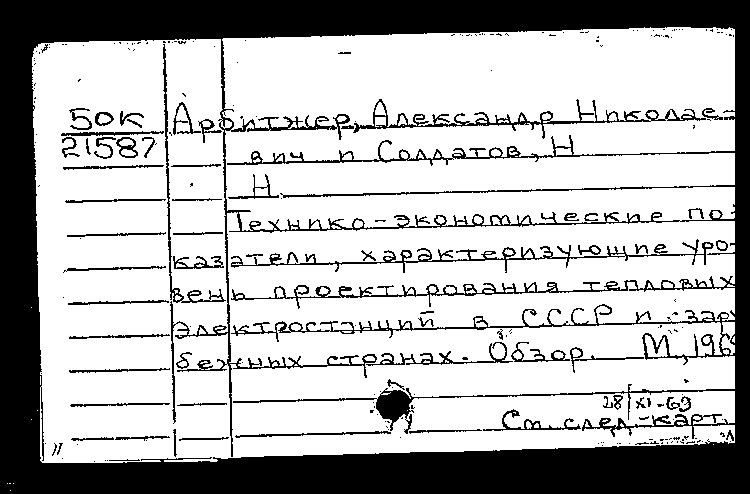 50К Арбитжер, Александр Николае-
21587 вич и Солдатов, Н
Н.
Технико-экономические по-
казатели, характеризующие уро-
вень проектирования тепловых
электростанций в СССР и зару
бежных странах. Обзор. М., 196
28/XI-69
См. след. карт.